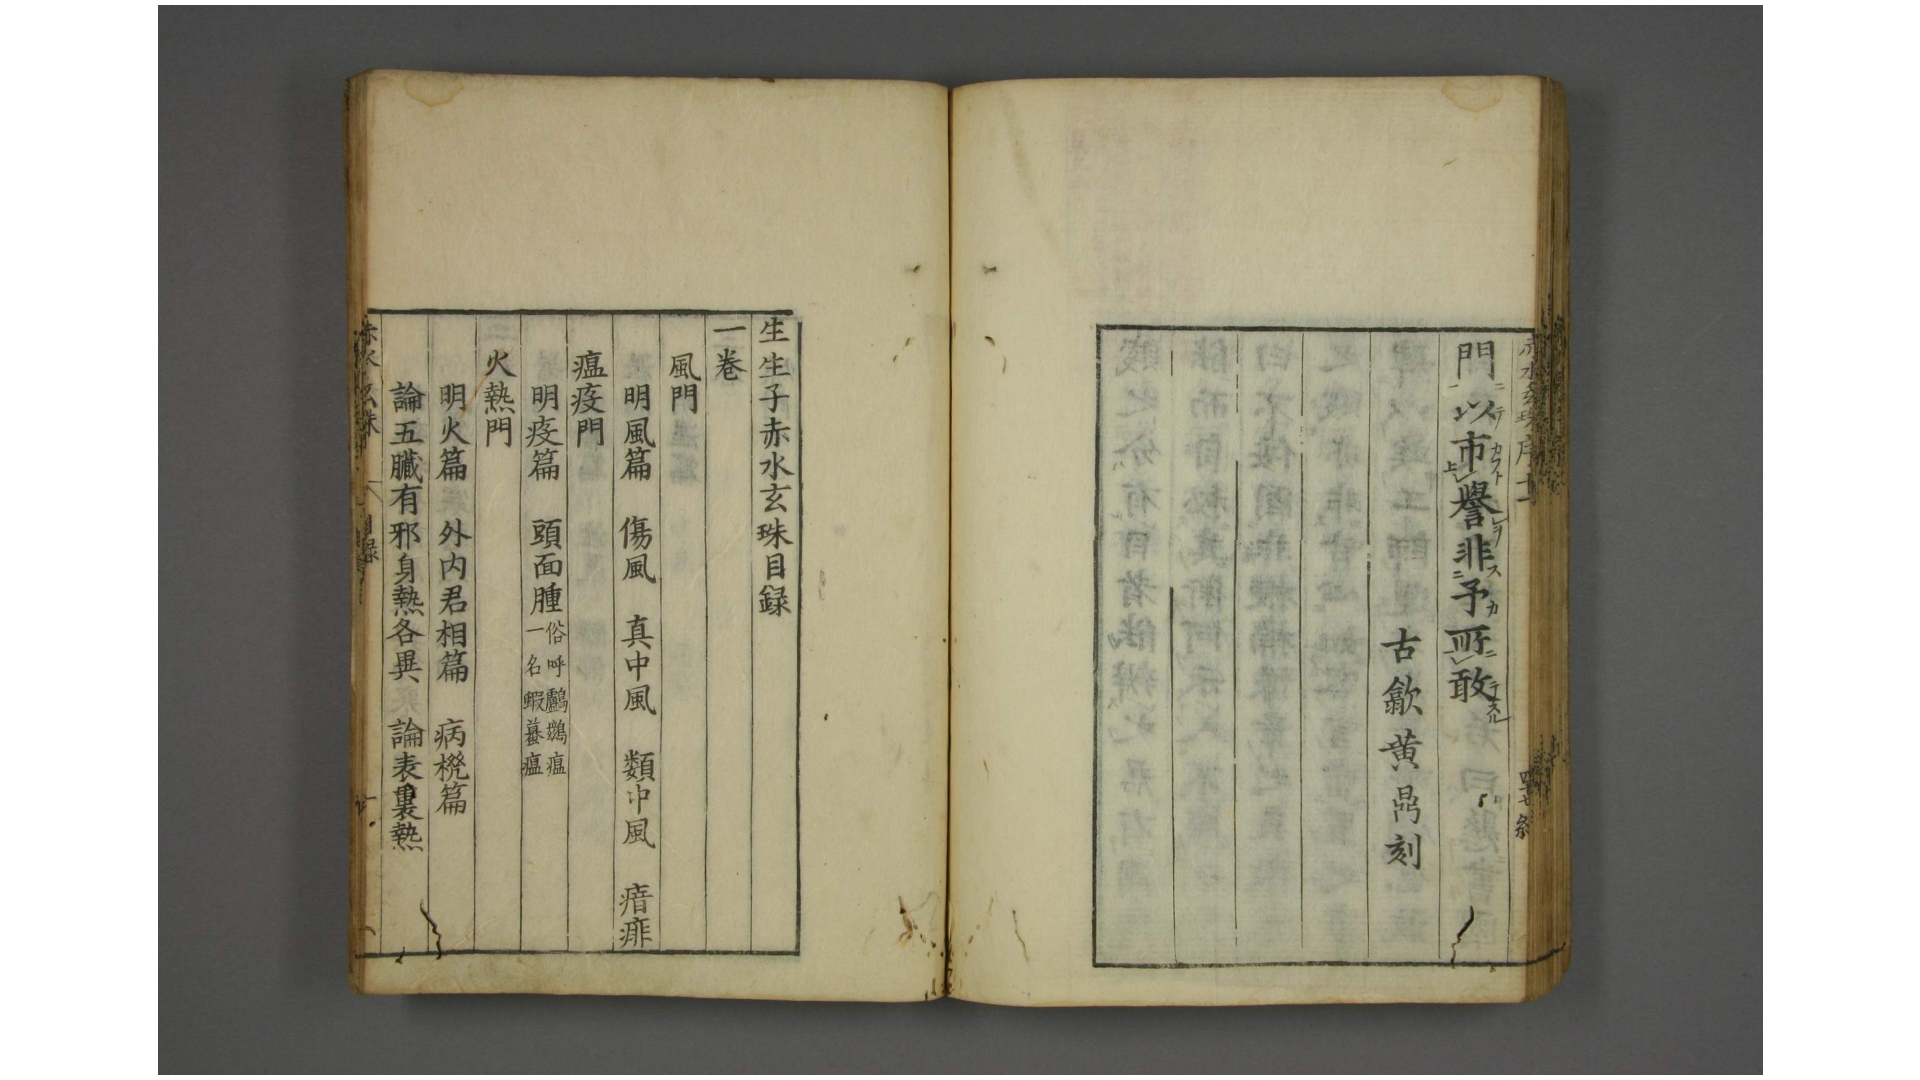 門以市譽非予所敢
古歙黄鼎刻
生生子赤水玄珠目録
一卷
風門
明風篇 傷風 真中風 類中風 瘖痱
瘟疫門
明疫篇 頭面腫 俗呼鸕鷀瘟
一名蝦蟇瘟
火熱門
明火篇 外内君相篇 病機篇
論五臟有邪身熱各異 論表裏熱
赤水玄珠
目録